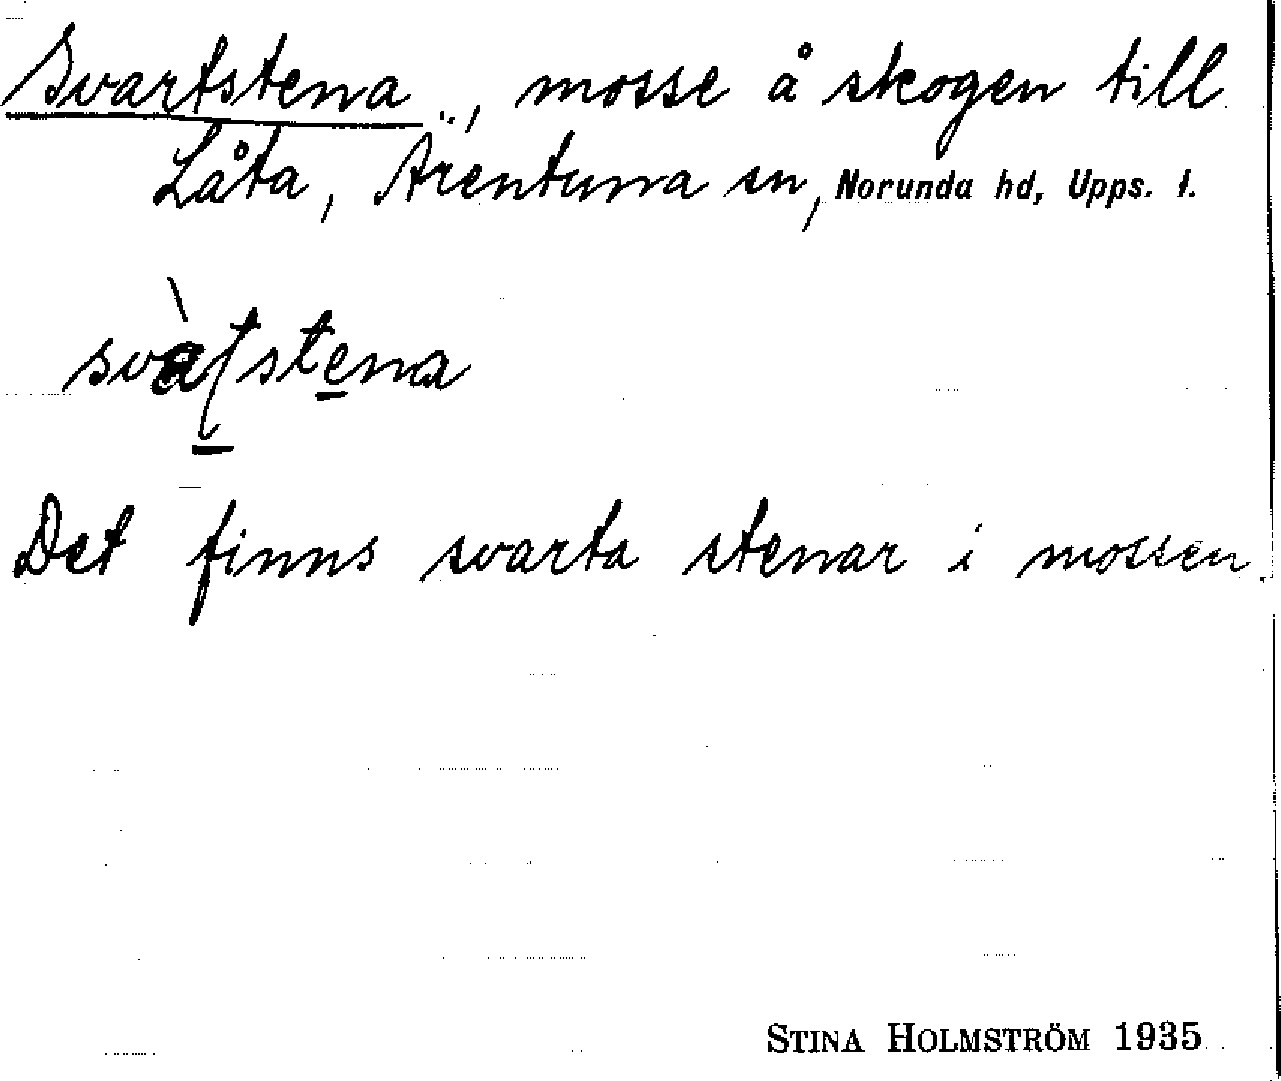 Svartstena, mosse å skogen till
Låta, Ärentuna sn, Norunda hd, Upps. l.
svàʈstena
Det finns svarta stenar i mossen.
STINA HOLMSTRÖM 1935